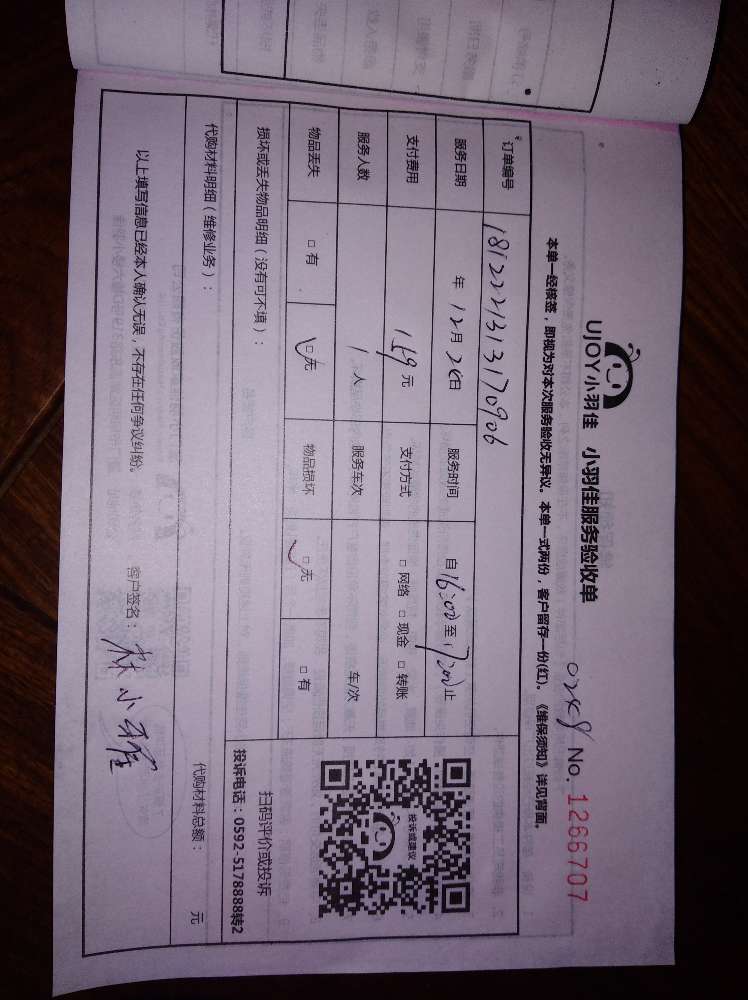 UJOY小羽佳 小羽佳服务验收单
No. 1266707
本单一经核签，即视为对本次服务验收无异议。本单一式两份，客户留存一份(红)。《维保须知》详见背面。
订单编号 1812221313170906
服务日期 年 12月26日 服务时间 自 16:00 至 17:00 止
支付费用 159元 支付方式 □ 网络 □ 现金 □ 转账
服务人数 1 人 服务车次 车/次
物品丢失 □ 有 □ 无 物品损坏 □ 无 □ 有
投诉或建议
扫码评价或投诉
投诉电话：0592-5178888转2
损坏或丢失物品明细（没有可不填）：
代购材料明细（维修业务）： 代购材料总额： 元
以上填写信息已经本人确认无误，不存在任何争议纠纷。 客户签名：